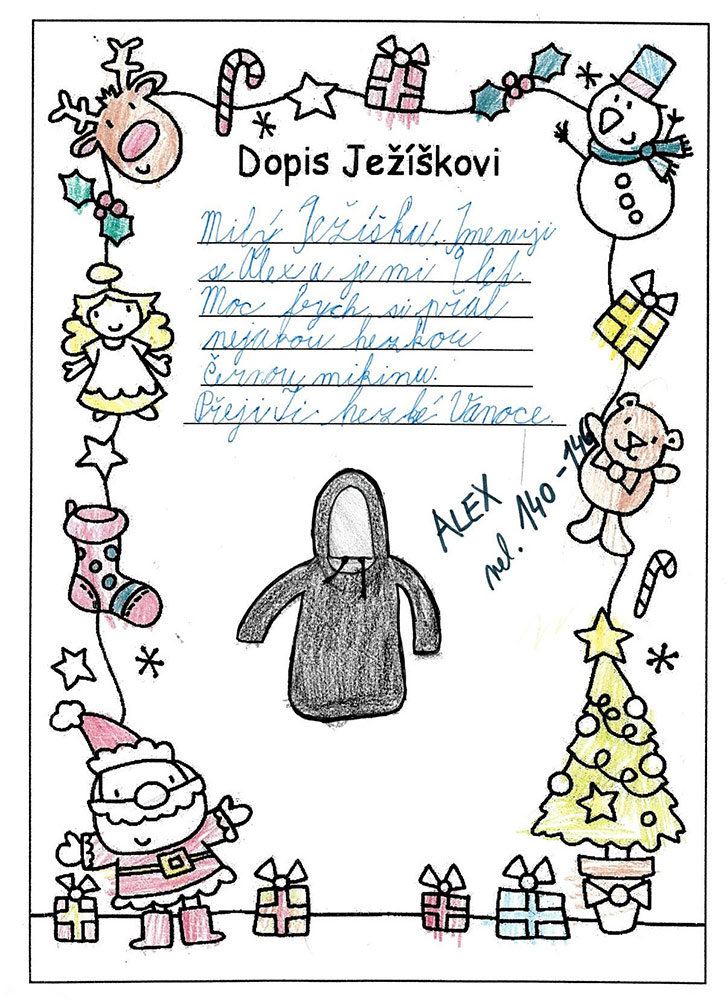 Dopis Ježíškovi
Milý Ježíšku. Jmenuji
se Alex a je mi 9 let.
Moc bych si přál
nějakou hezkou
černou mikinu.
Přeji Ti hezké Vánoce.
ALEX
vel. 140-146